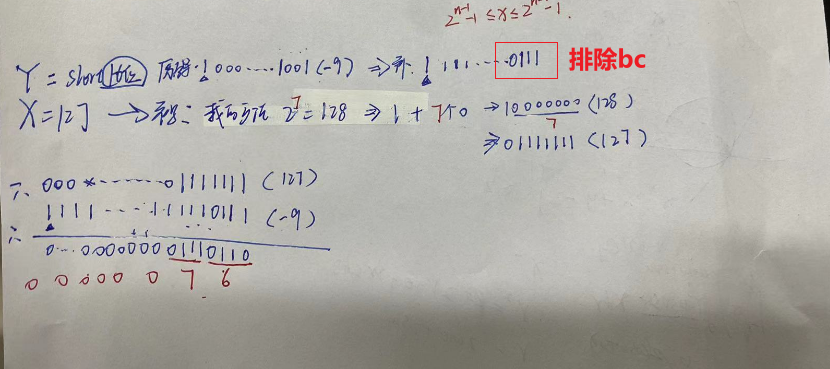 2^n-1 -1 ≤ x ≤ 2^n-1 -1.
Y = short 16位 原码: 1 000 ..... 1001 (-9) ⇒ 补. 1 111 ..... 0111 排除bc
X = 127 → 我的方法 2^7 = 128 ⇒ 1 + 7个0 → 10000000 (128)
7
⇒ 01111111 (127)
一、000 ....... 01111111 (127)
二: 1111 ... 11110111 (-9)
0...00000000 01110110
0 0 0 0 0 0 7 6